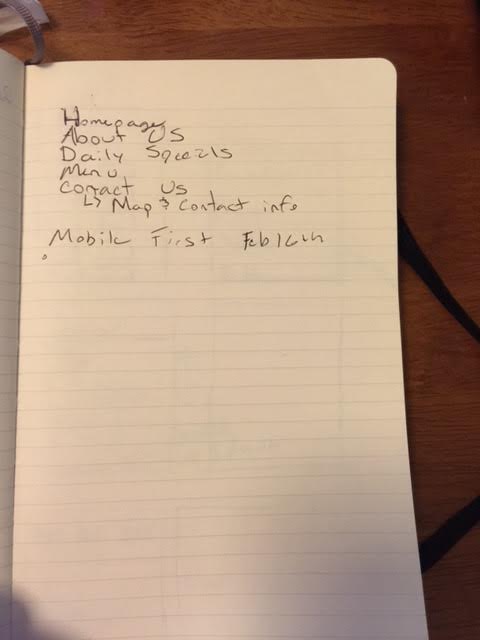 Homepage
About Us
Daily Specials
Menu
Contact Us
↳ Map & Contact info
Mobile First Feb 16th